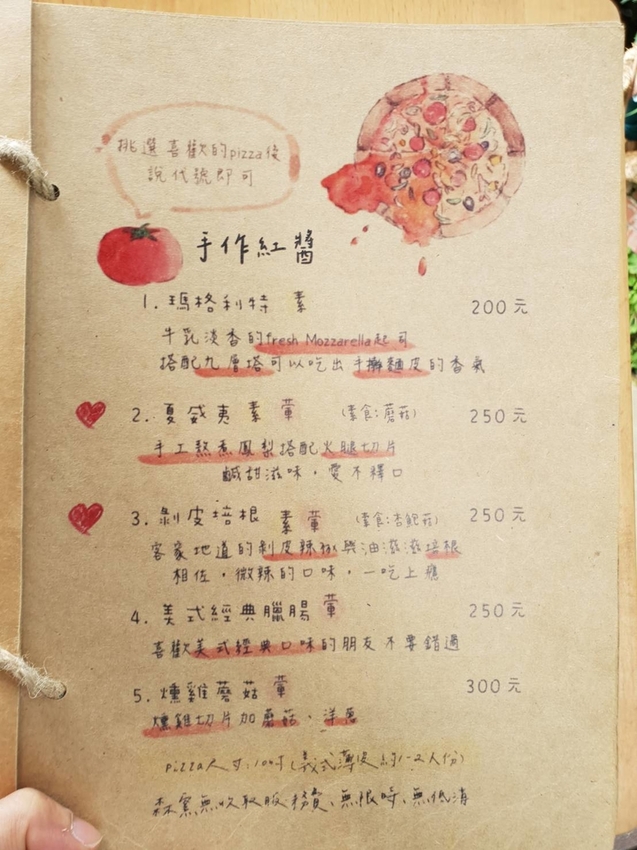 挑選喜歡的pizza後
說代號即可
手作紅醬
1. 瑪格利特 素 200元
牛乳淡香的fresh Mozzarella起司
搭配九層塔可以吃出手擀麵皮的香氣
2. 夏威夷 素 葷 (素食:蘑菇) 250元
手工熬煮鳳梨搭配火腿切片
鹹甜滋味,愛不釋口
3. 剝皮培根 素 葷 (素食:杏鮑菇) 250元
客家地道的剝皮辣椒與油滋滋培根
相佐,微辣的口味,一吃上癮
4. 美式經典臘腸 葷 250元
喜歡美式經典口味的朋友不要錯過
5. 燻雞蘑菇 葷 300元
燻雞切片加蘑菇、洋蔥
pizza尺寸:10吋(義式薄皮約1-2人份)
森窯無收取服務費、無限時、無低消